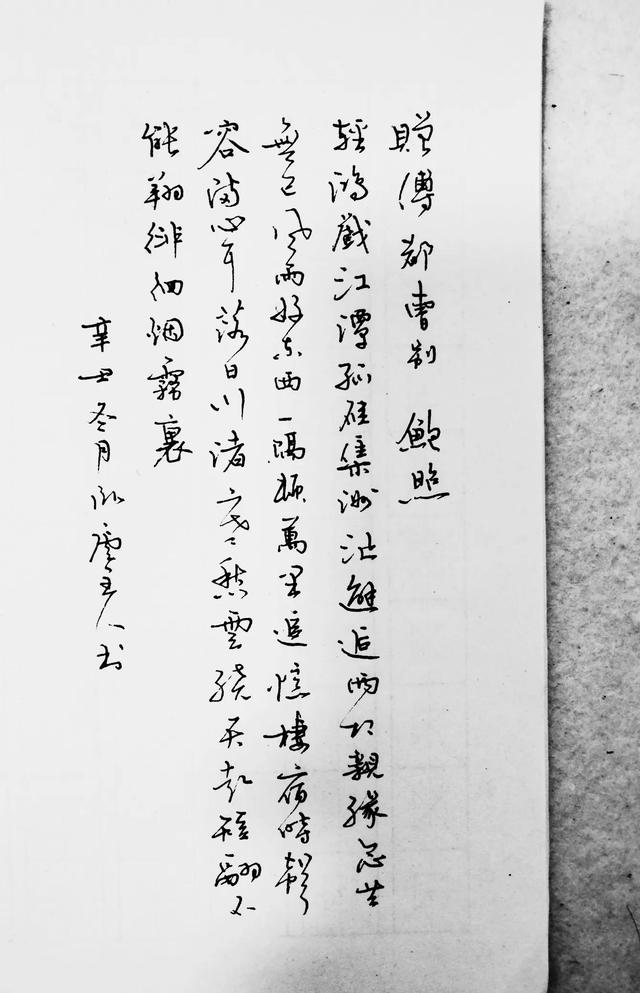 贈傅都曹别 鮑照
輕鴻戲江潭孤雁集洲沚邂逅兩相親緣念共
無已風雨好東西一隔頓萬里追憶棲宿時聲
容滿心耳落日川渚寒愁雲繞天起短翮不
能翔徘徊烟霧裏
辛丑冬月虛主人书